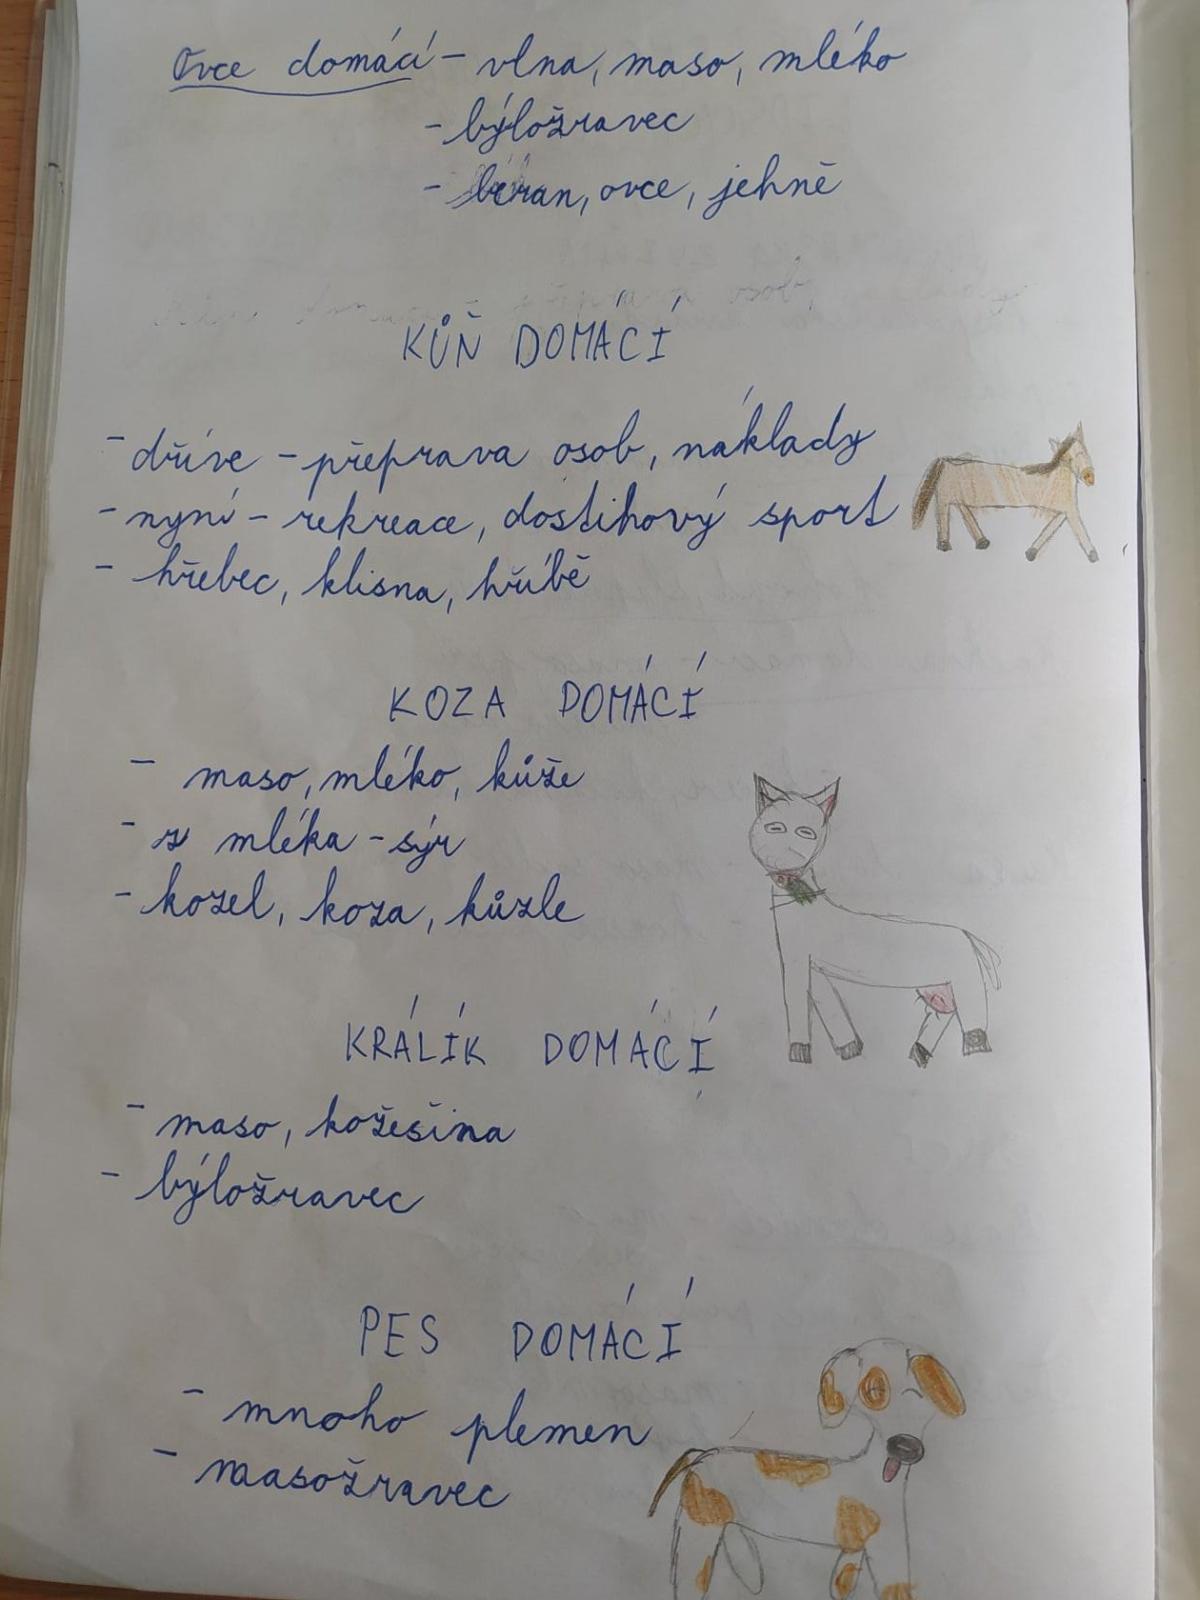 Ovce domácí - vlna, maso, mléko
- býložravec
- beran, ovce, jehně
KŮŇ DOMÁCÍ
- dříve - přeprava osob, náklady
- nyní - rekreace, dostihový sport
- hřebec, klisna, hříbě
KOZA DOMÁCÍ
- maso, mléko, kůže
- z mléka - sýr
- kozel, koza, kůzle
KRÁLÍK DOMÁCÍ
- maso, kožešina
- býložravec
PES DOMÁCÍ
- mnoho plemen
- masožravec